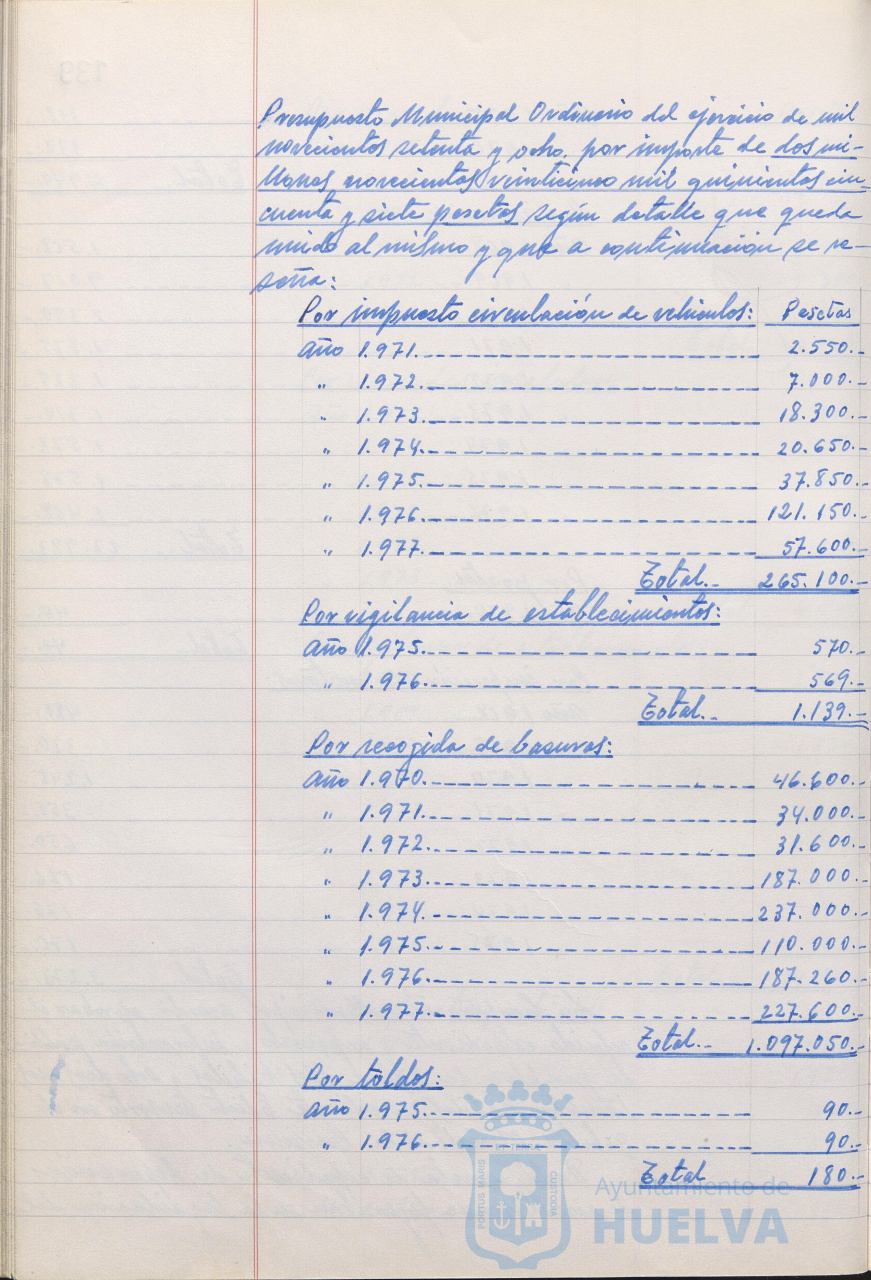 Presupuesto Municipal Ordinario del ejercicio de mil
novecientos setenta y ocho, por importe de dos mi-
llones novecientas veinticinco mil quinientas cin-
cuenta y siete pesetas según detalle que queda
unido al mismo y que a continuación se re-
seña:
Por impuesto circulación de vehículos: Pesetas
Año 1.971.- 2.550.-
" 1.972.- 7.000.-
" 1.973.- 18.300.-
" 1.974.- 20.650.-
" 1.975.- 37.850.-
" 1.976.- 121.150.-
" 1.977.- 57.600.-
Total.- 265.100.-
Por vigilancia de establecimientos:
Año 1.975.- 570.-
" 1.976.- 569.-
Total.- 1.139.-
Por recogida de basuras:
Año 1.970.- 46.600.-
" 1.971.- 34.000.-
" 1.972.- 31.600.-
" 1.973.- 187.000.-
" 1.974.- 237.000.-
" 1.975.- 110.000.-
" 1.976.- 187.260.-
" 1.977.- 227.600.-
Total.- 1.097.050.-
Por toldos:
Año 1.975.- 90.-
" 1.976.- 90.-
Total 180.-
PORTUS MARIS
CUSTODIA
Ayuntamiento de
HUELVA